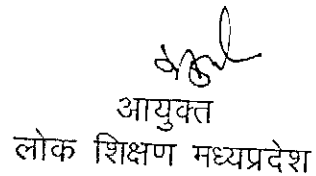 आयुक्त
लोक शिक्षण मध्यप्रदेश